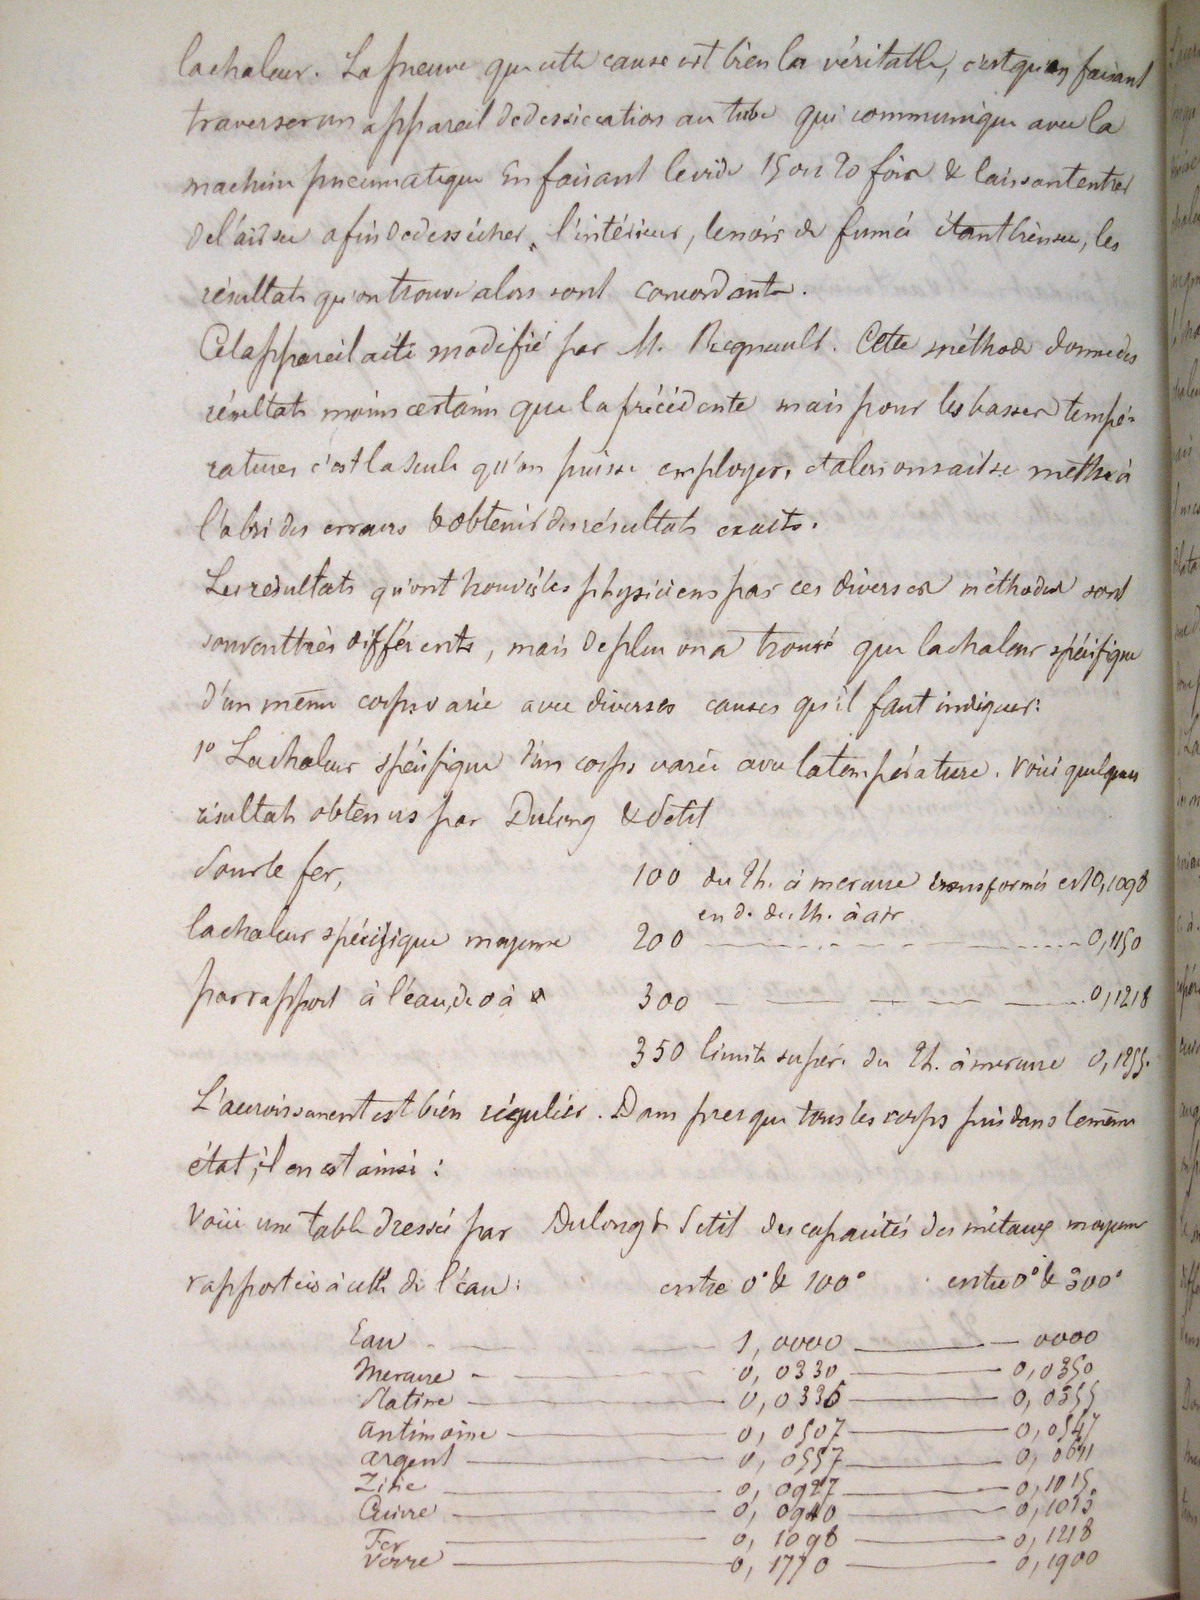 la chaleur. La preuve que cette cause est bien la véritable, c'est qu'en faisant
traverser un appareil de dessiccation au tube qui communique avec la
machine pneumatique En faisant le vide 15 ou 20 fois & laissant entrer
de l'air sec afin de dessécher l'intérieur, le noir de fumée étant bien sec, les
résultats qu'on trouve alors sont concordants.
Cet appareil a été modifié par M. Regnault. Cette méthode donne des
résultats moins certains que la précédente mais pour les basses tempé-
ratures c'est la seule qu'on puisse employer, et alors on sait se mettre à
l'abri des erreurs & obtenir des résultats exacts.
Les résultats qu'ont trouvés les physiciens par ces diverses méthodes sont
souvent très différents, mais de plus on a trouvé que la chaleur spécifique
d'un même corps varie avec diverses causes qu'il faut indiquer:
1° La chaleur spécifique d'un corps varie avec la température. Voici quelques
résultats obtenus par Dulong & Petit
Pour le fer, 100 du Th. à mercure transformés en 0,1098
en d. du Th. à air
la chaleur spécifique moyenne 200 0,1150
par rapport à l'eau, de 0 à 300 0,1218
350 limite supér. du Th. à mercure 0,1255.
L'accroissement est bien régulier. Dans presque tous les corps pris dans le même
état, il en est ainsi :
Voici une table dressée par Dulong & Petit des capacités des métaux moyenne
rapportées à celle de l'eau: entre 0° & 100° entre 0° & 300°
Eau 1,0000 0000
Mercure 0,0330 0,0350
Platine 0,0335 0,0355
Antimoine 0,0507 0,0547
Argent 0,0557 0,0611
Zinc 0,0927 0,1015
Cuivre 0,0940 0,1013
Fer 0,1098 0,1218
Verre 0,1770 0,1900